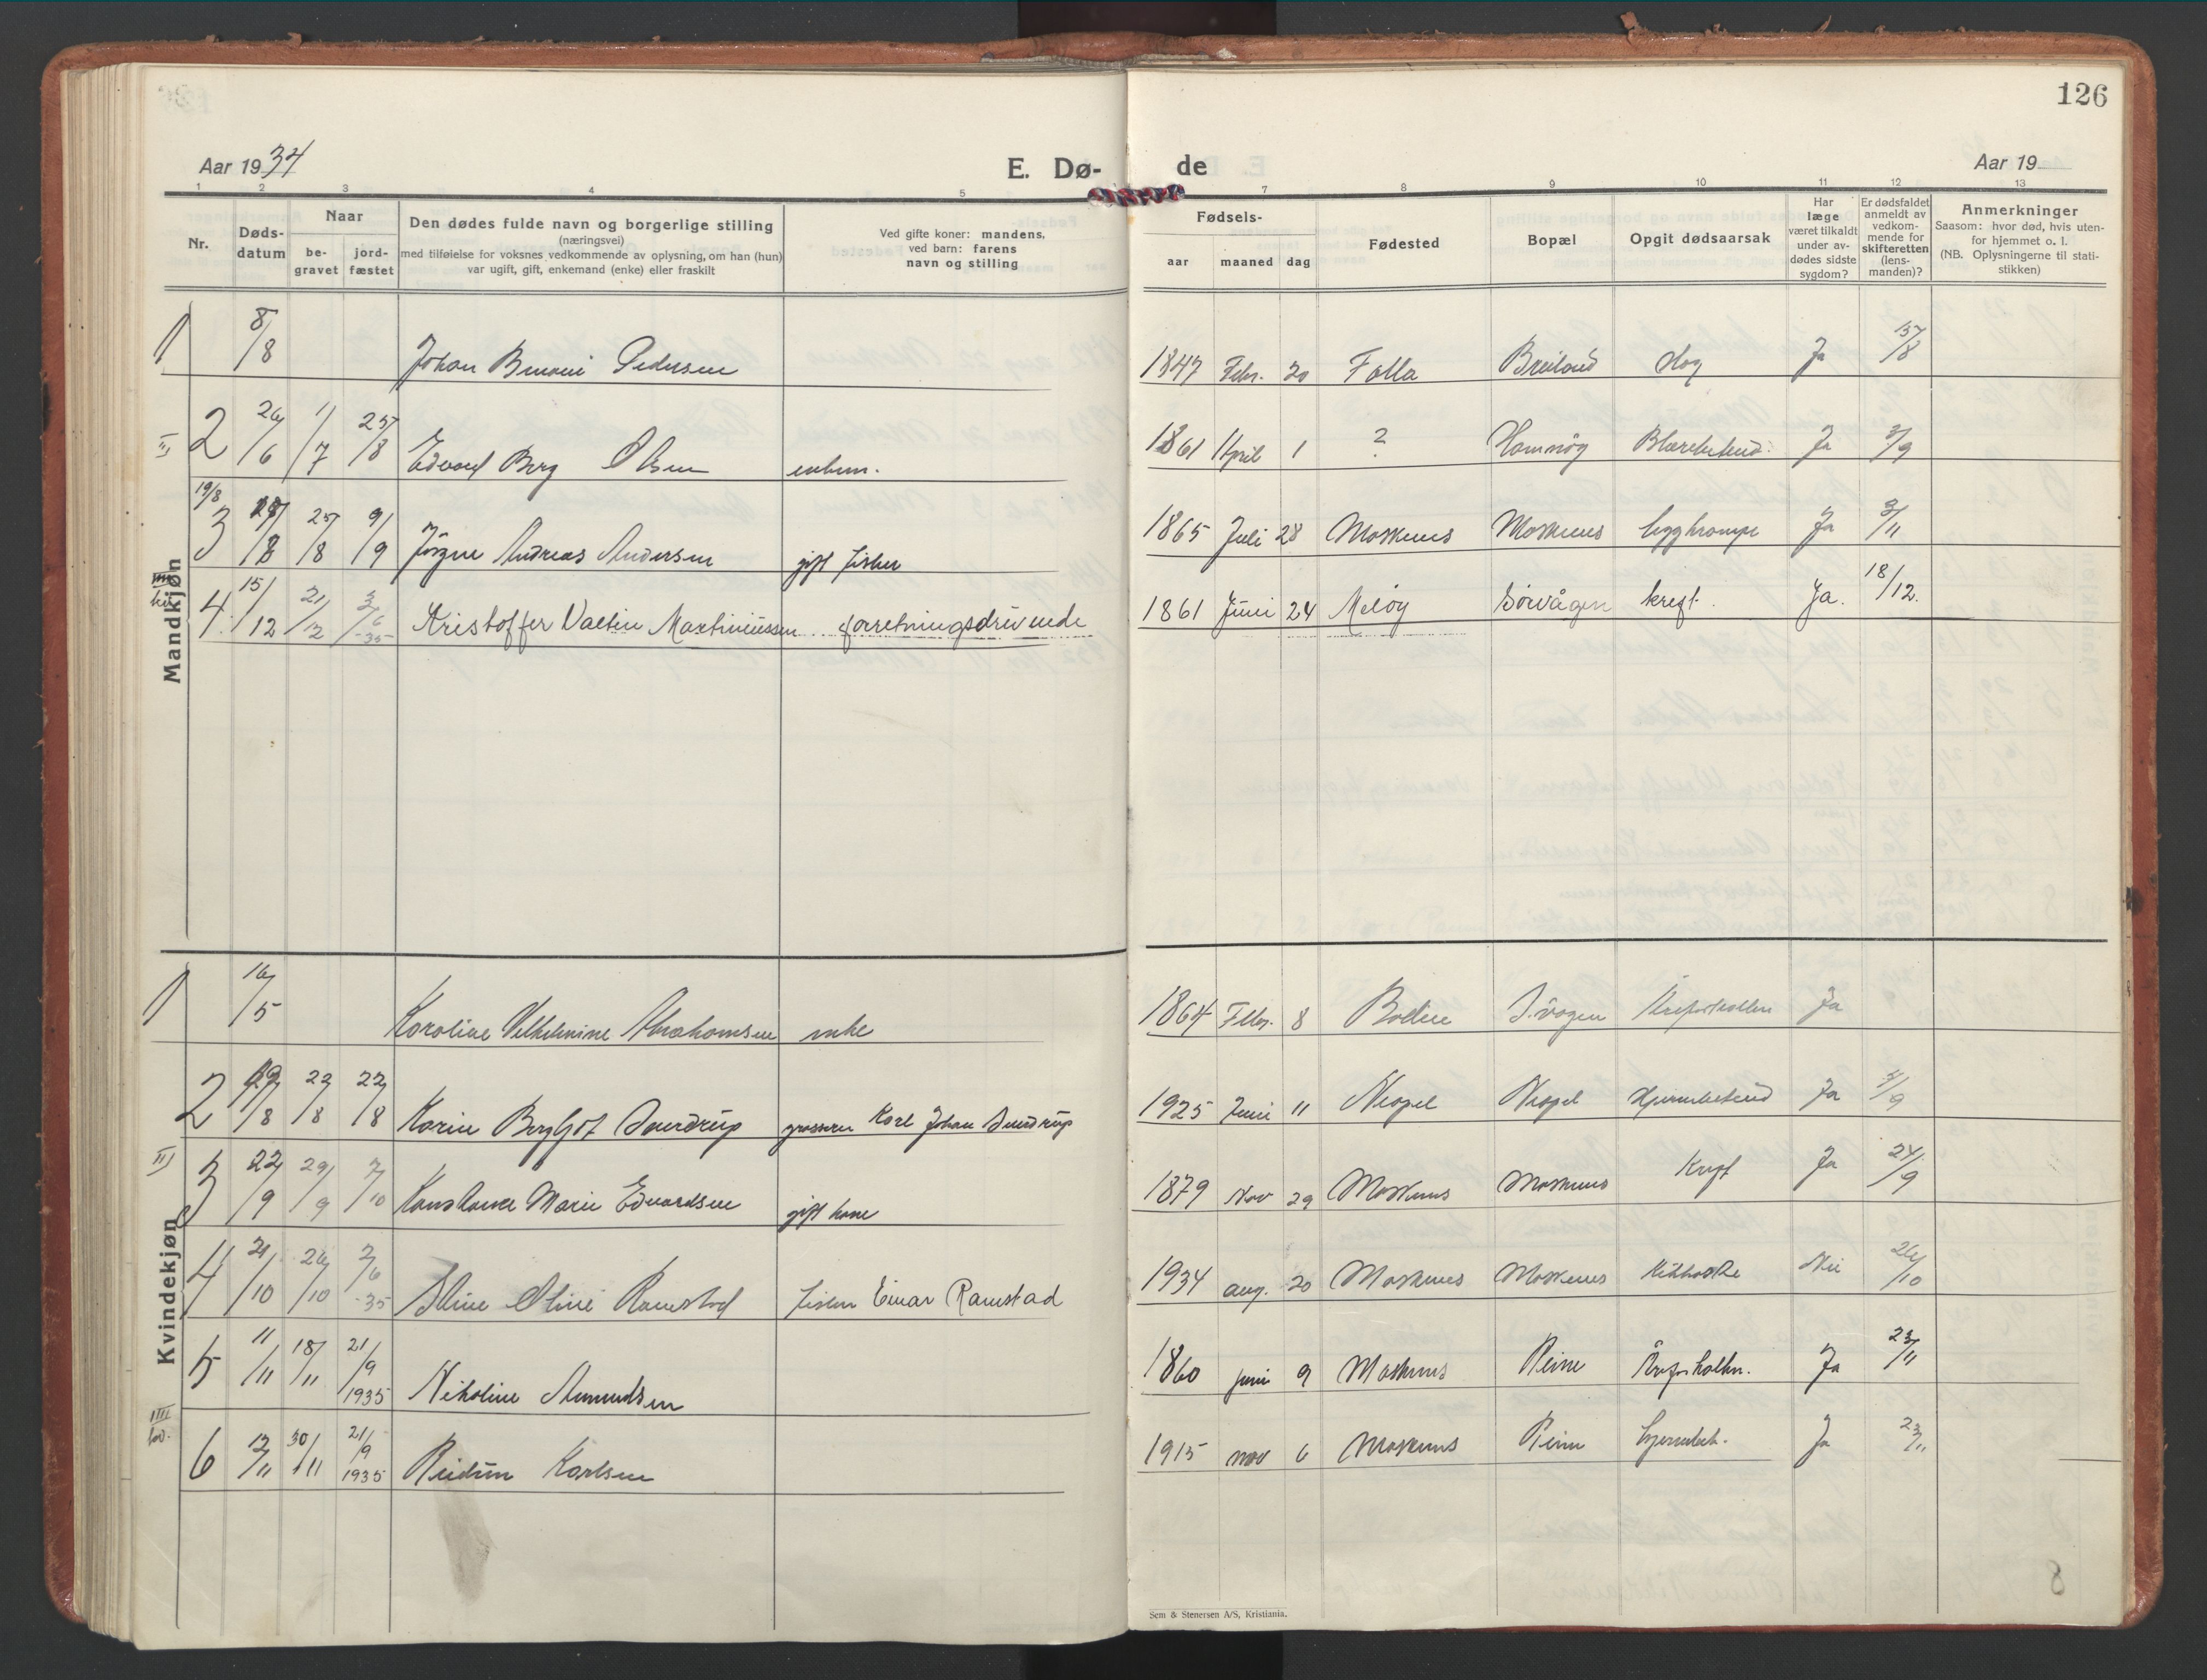 126
Aar 1934 E. Dø- de Aar 19
1 2 3 4 5 7 8 9 10 11 12 13
Nr. Døds-datum Naar be-gravet jord-fæstet
Den dødes fulde navn og borgerlige stilling
(næringsvei)
med tilføielse for voksnes vedkommende av oplysning, om han (hun)
var ugift, gift, enkemand (enke) eller fraskilt
Ved gifte koner: mandens,
ved barn: farens
navn og stilling
Fødsels- aar maaned dag
Fødested Bopæl Opgit dødsaarsak
Har læge været tilkaldt under av-dødes sidste sygdom?
Er dødsfaldet anmeldt av vedkom-mende for skifteretten (lens-manden)?
Anmerkninger
Saasom: hvor død, hvis uten-
for hjemmet o. l.
(NB. Oplysningerne til stati-
stikken)
Mandkjøn
1 8/8 Johan Pedersen 1847 Febr. 20 Folla Ja
2 26/6 1/7 25/8 Edvard Berg Olsen enkem. 1861 April 1 ? Hamnöy Ja 3/9
19/8
3 25/8 9/9 Jörgen Andreas Andersen gift fisker 1865 Juli 28 Moskenes Moskenes Ja 3/11
4 15/12 21/12 3/6 -35- Kristoffer Martiniussen forretningsdrivende 1861 Juni 24 Melöy Sörvågen kreft. Ja. 18/12.
Kvindekjøn
1 16/5 Karoline Abrahamsen enke 1864 Febr. 8 S.vågen Ja
2 22/8 22/8 Karin Sverdrup grosserer Karl Johan Sverdrup 1925 Juni 11 Ja
III
3 22/9 29/9 7/10 Marie Edvardsen gift kone 1879 Nov 29 Moskenes Moskenes Kreft Ja 24/9
4 21/10 26/10 2/6 -35 Oline Ramstad fisker Einar Ramstad 1934 aug. 20 Moskenes Moskenes Kikhoste Nei 26/10
5 11/11 18/11 21/9 1935 Nikoline Amundsen 1860 juni 9 Moskenes Reine Ja 23/11
6 12/11 30/11 21/9 1935 Reidun Karlsen 1915 nov 6 Moskenes Reine Ja 23/11
Sem & Stenersen A/S, Kristiania.
8